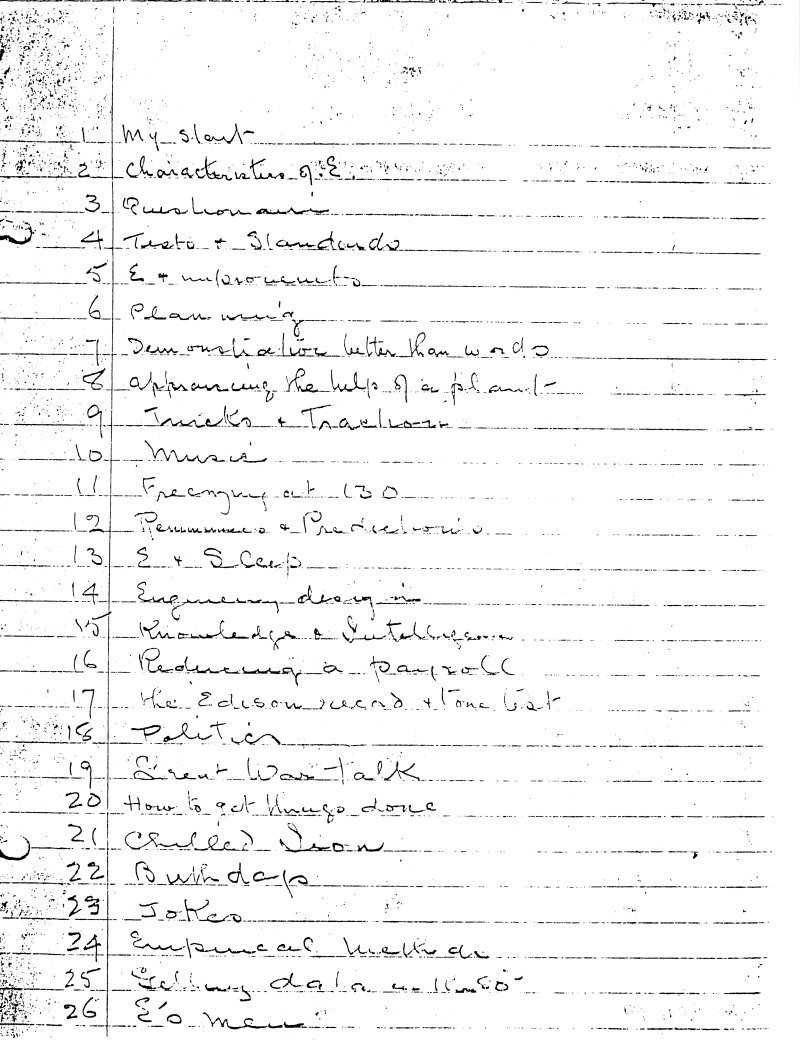 1 My start
2 Characteristics of E.
3 Questionaire
4 Tests + Standards
5 E + improvements
6 Planning
7 Demonstration better than words
8 appraising the help of a plant
9 Tricks + Traction
10 Music
11 Freezing at 130
12 + Predictions
13 E + Sleep
14 Engineering design
15 Knowledge & Intelligence
16 Reducing a payroll
17 the Edison record + tone test
18 Politics
19 Great War talk
20 How to get things done
21 Chilled Iron
22 Birthdays
23 Jokes
24 Empirical Methods
25 Getting data
26 E's men